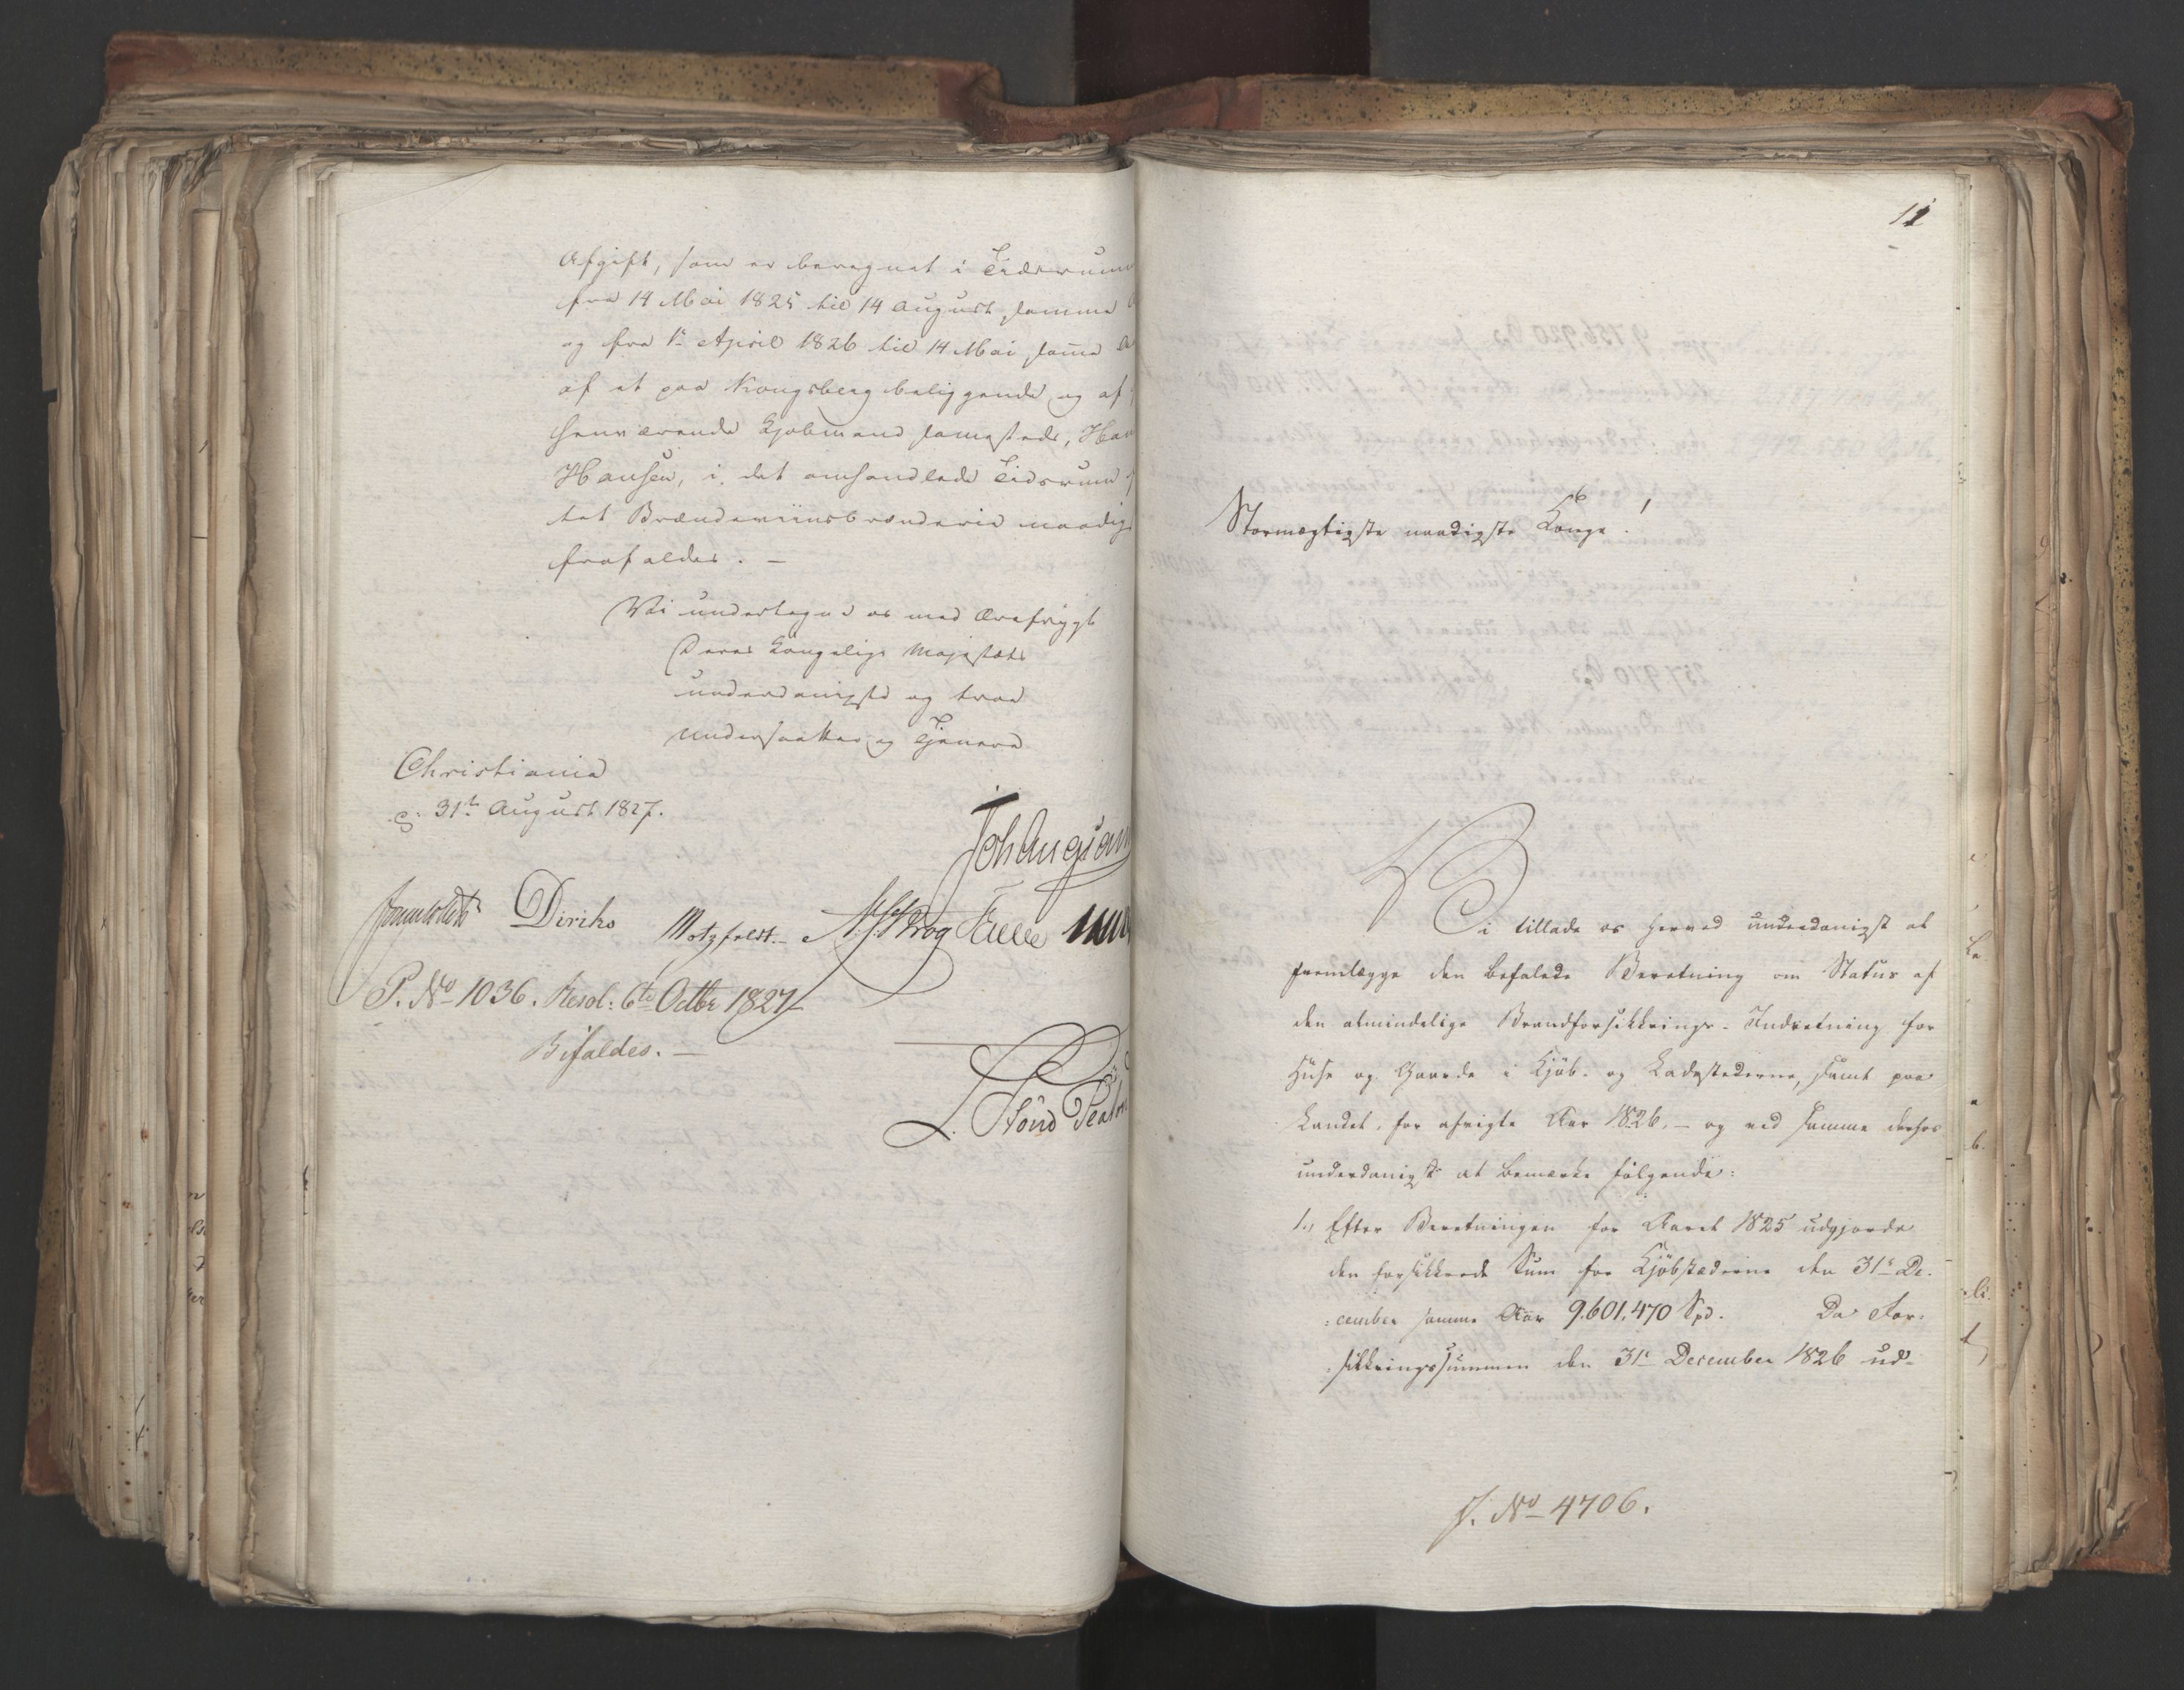 Afgift, som er beregnet i Tidsrum
fra 14 Mai 1825 til 14 August samme
og fra 1ste April 1826 til 14 Mai samme
af et paa Kongsberg beliggende og af
henværende Kjøbmand sammesteds, Han
Hansen, i det omhandlede Tidsrum
tet Brændeviinsbrænderie naadig
frafaldes. —
Vi undertegne os med Ærefrygt
Deres Kongelige Majestæts
underdanigste og troe
Undersaatter og Tjenere
Christiania
d: 31te August 1827.
Diriks Motzfeldt. N. J. Krog
P. No 1036. Resol: 6te Octbr 1827
Bifaldes. —
11
Stormægtigste naadigste Konge!
Vi tillade os herved underdanigst at
fremlægge den befalede Beretning om Status af
den almindelige Brandforsikkrings-Indretning for
Huse og Gaarde i Kjøb- og Ladestederne, samt paa
Landet, for afvigte Aar 1826, — og ved samme derhos
underdanigst at bemærke følgende:
1., Efter Beretningen for Aaret 1825 udgjorde
den forsikkrede Sum for Kjøbstæderne den 31te De-
:cember samme Aar 9.601.470 Spd. Da For-
:sikkringssummen den 31te December 1826 ud-
J. No 4706.